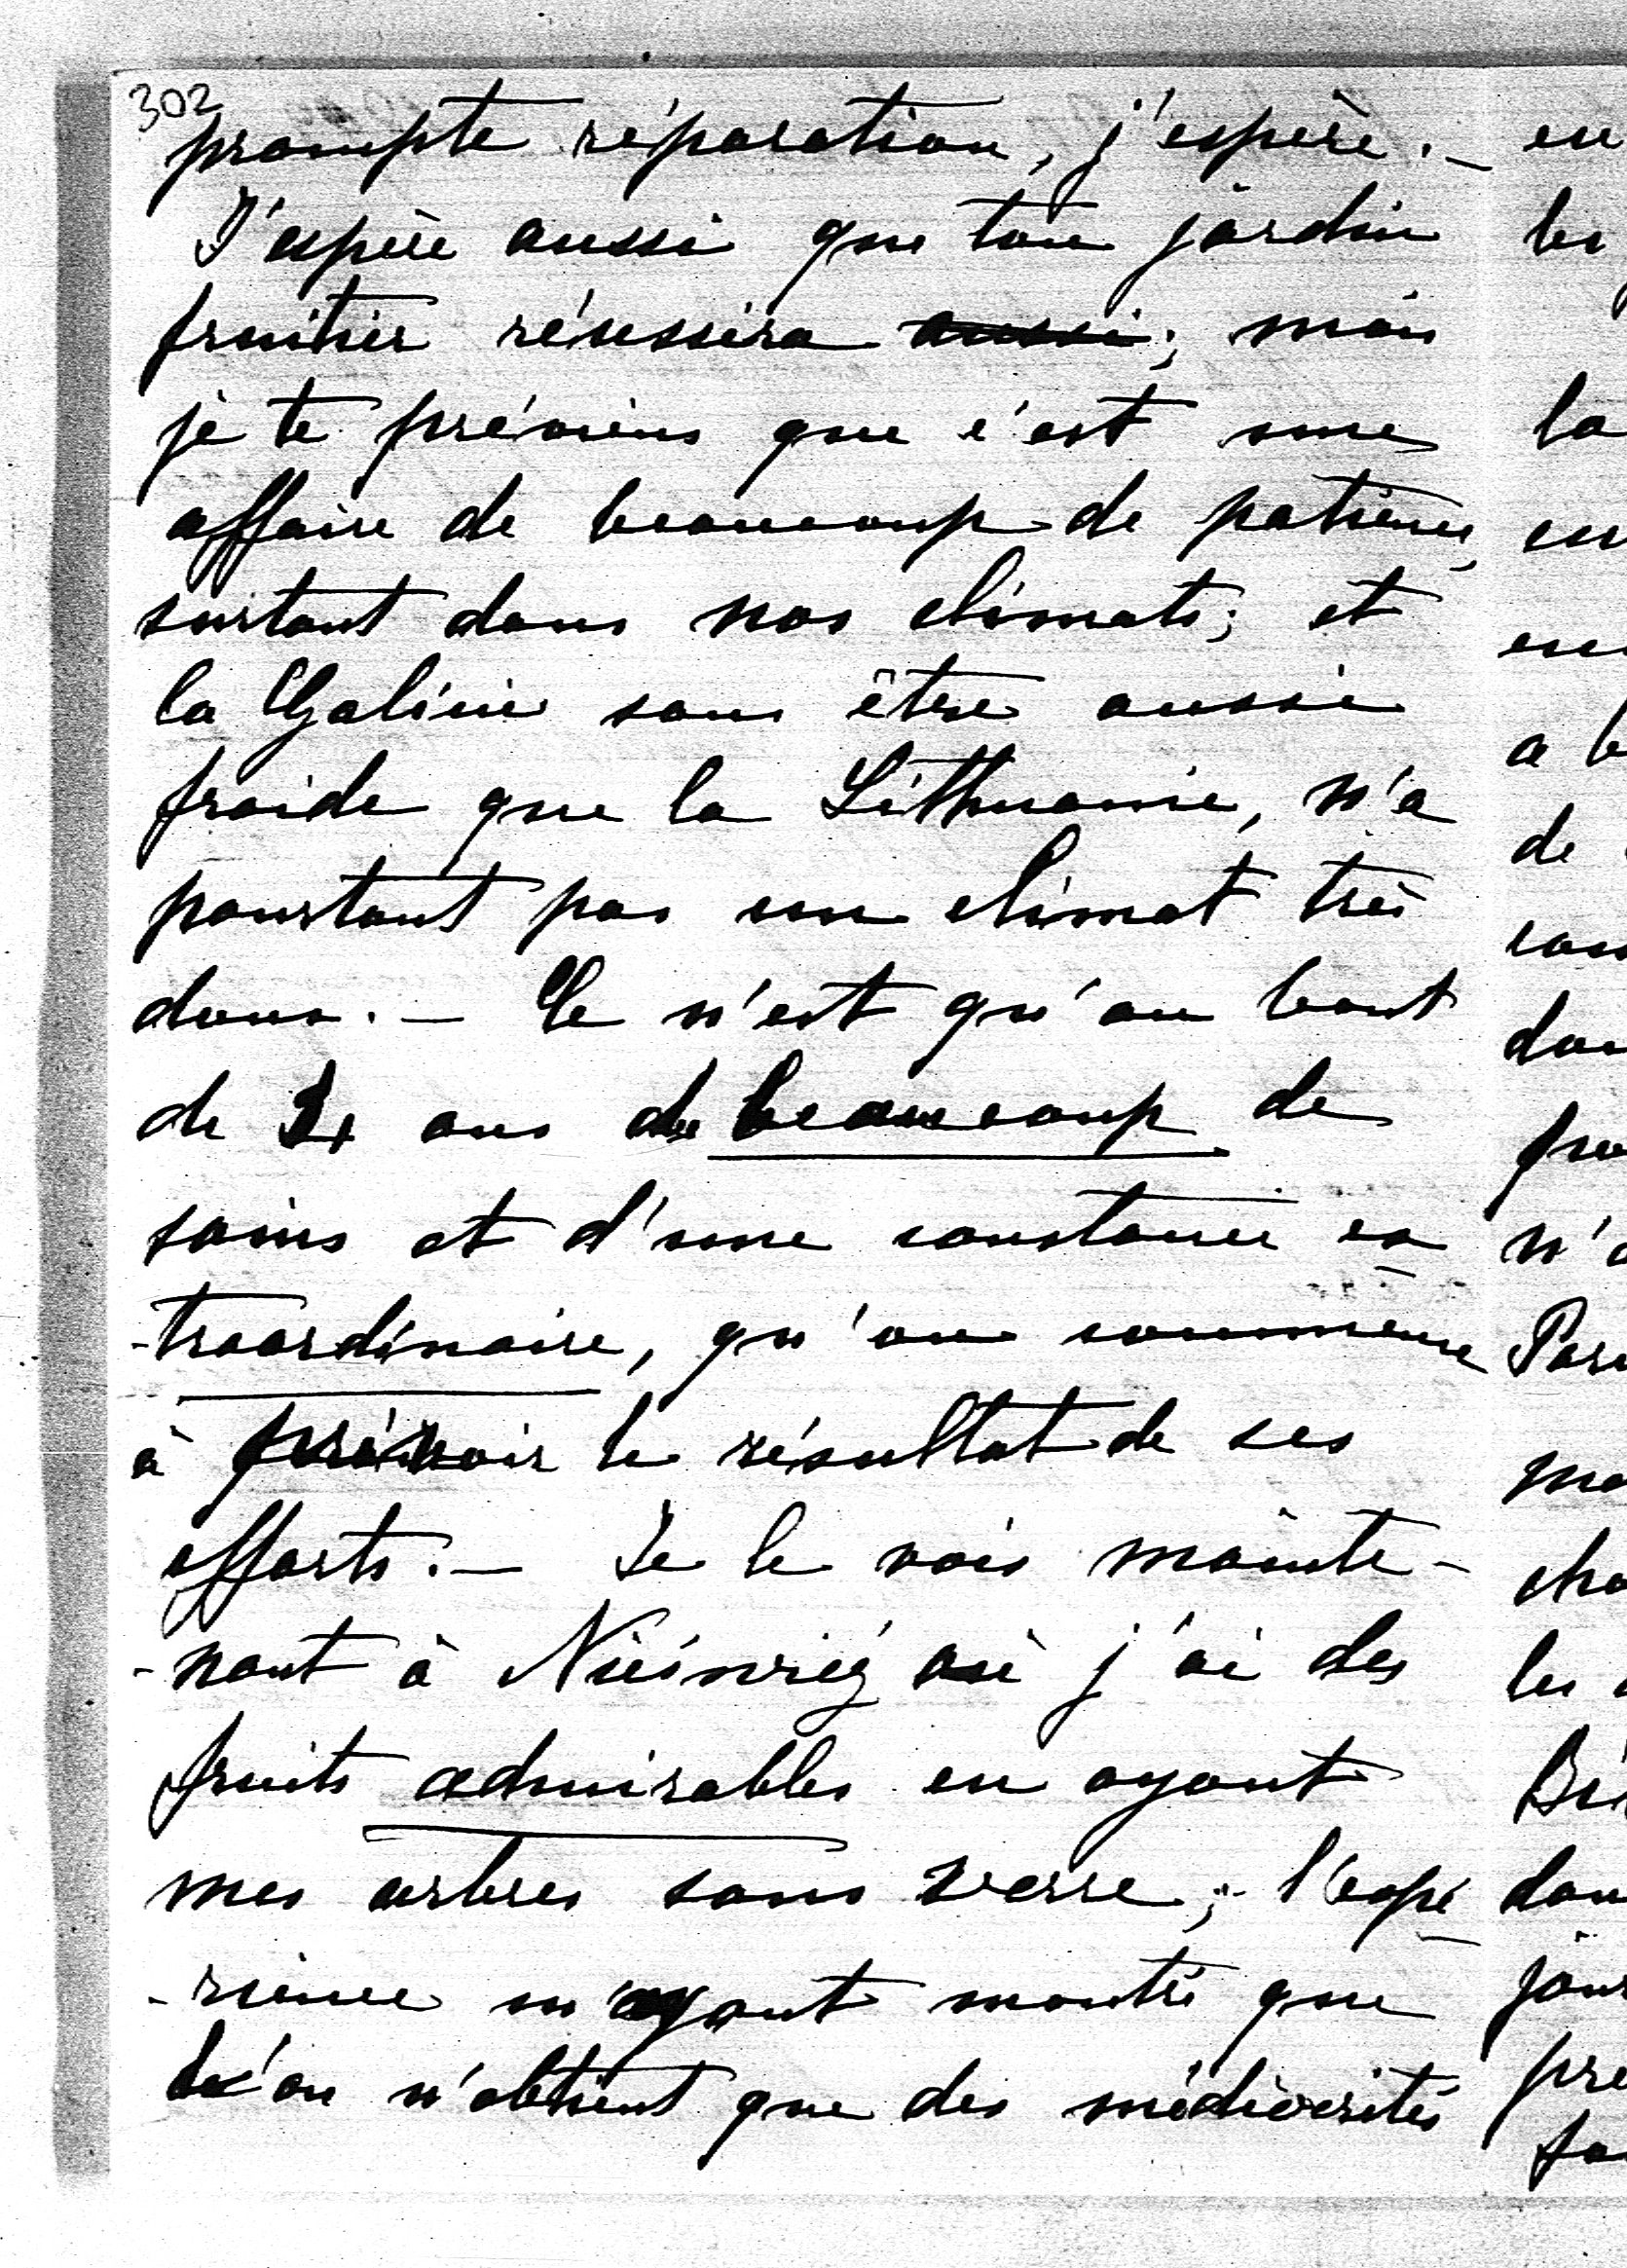 302
prompte réparation, j'espère. —
J'espère aussi que ton jardin
fruitier réussira aussi; mais
je te préviens que c'est une
affaire de beaucoup de patience,
surtout dans nos climats; et
la Galicie sans être aussi
froide que la Lithuanie, n'a
pourtant pas un climat très
doux. — Ce n'est qu'au bout
de ans de beaucoup de
soins et d'une constance ex
-traordinaire, qu'on commence
à prévoir le résultat de ses
efforts. — Je le vois mainte-
-nant à où j'ai des
fruits admirables en ayant
mes arbres sans verre; l'expé
-rience m'ayant montré que
l'on n'obtient que des médiocrités